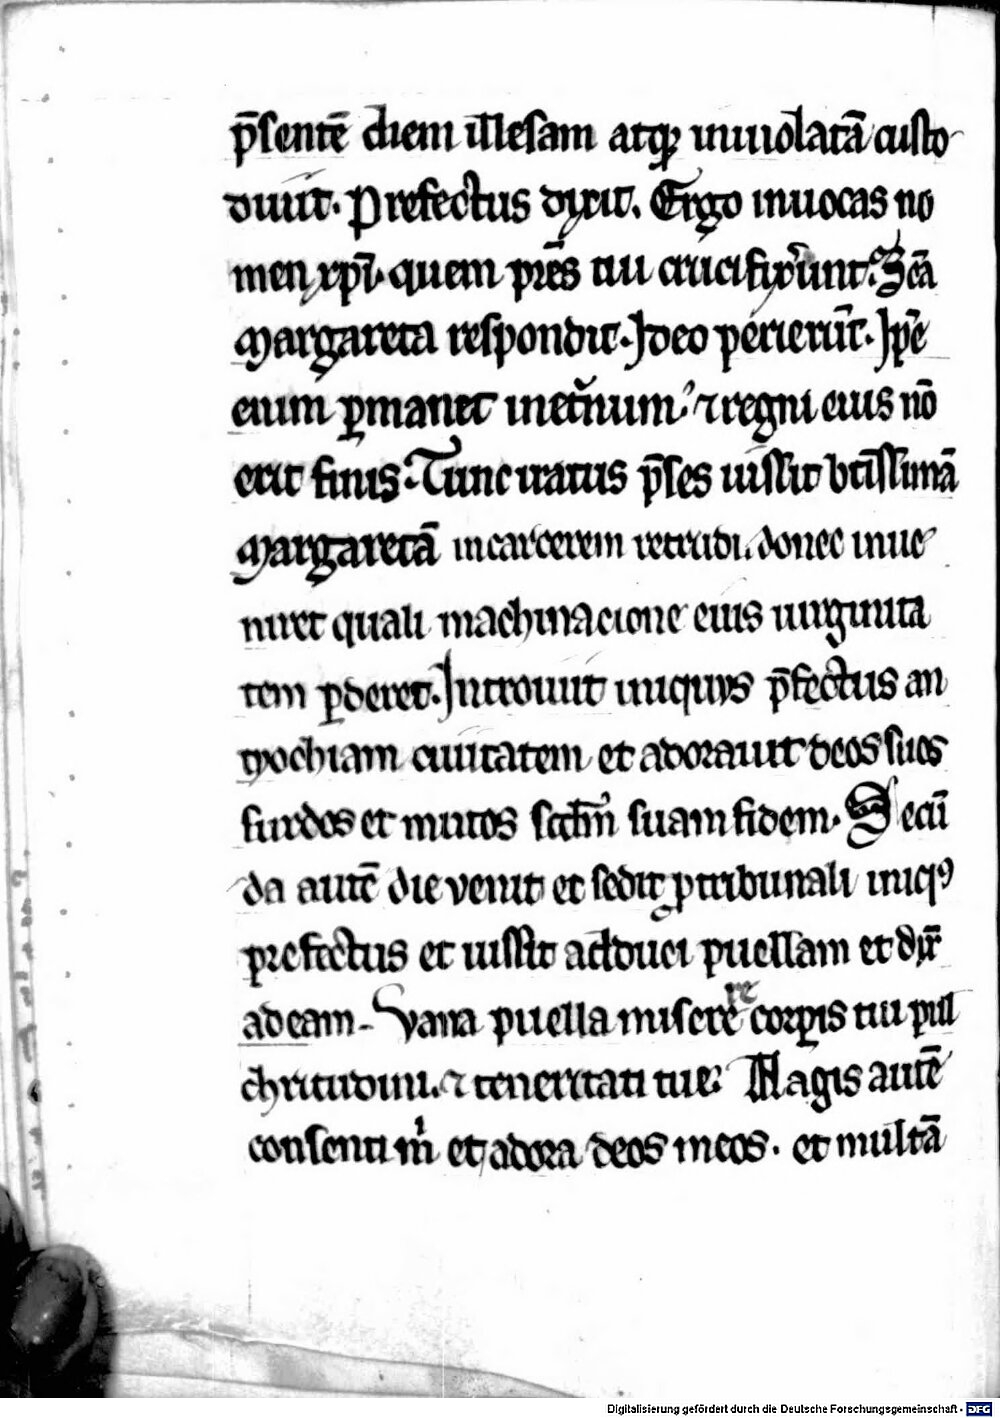 p̄sentē diem illesam atq̄ inuiolatā custo-
diuit. Prefectus dixit. Ergo inuocas no
men xp̄i. quem pr̄es tui crucifix̓unt. Sc̄a
Margareta respondit. Ideo perierūt. Ip̄e
enim ꝑmanet inet̓num. ⁊ regni eius nō
erit finis. Tunc iratus p̄ses iussit bt̄issimā
Margaretā incarcerem retrudi. donec inue
niret quali machinacione eius uirginita
tem ꝑderet. Introiuit iniquus p̄fectus an
tyochiam ciuitatem et adorauit deos suos
surdos et mutos scd̄m suam fidem. Secū
da autē die venit et sedit ꝓ tribunali iniqꝰ
prefectus et iussit adduci puellam et dix̄
ad eam. Vana puella miserere corꝑis tui pul
chritudini. ⁊ teneritati tue. Magis autē
consenti m̓ et adora deos meos. et multā
Digitalisierung gefördert durch die Deutsche Forschungsgemeinschaft - DFG